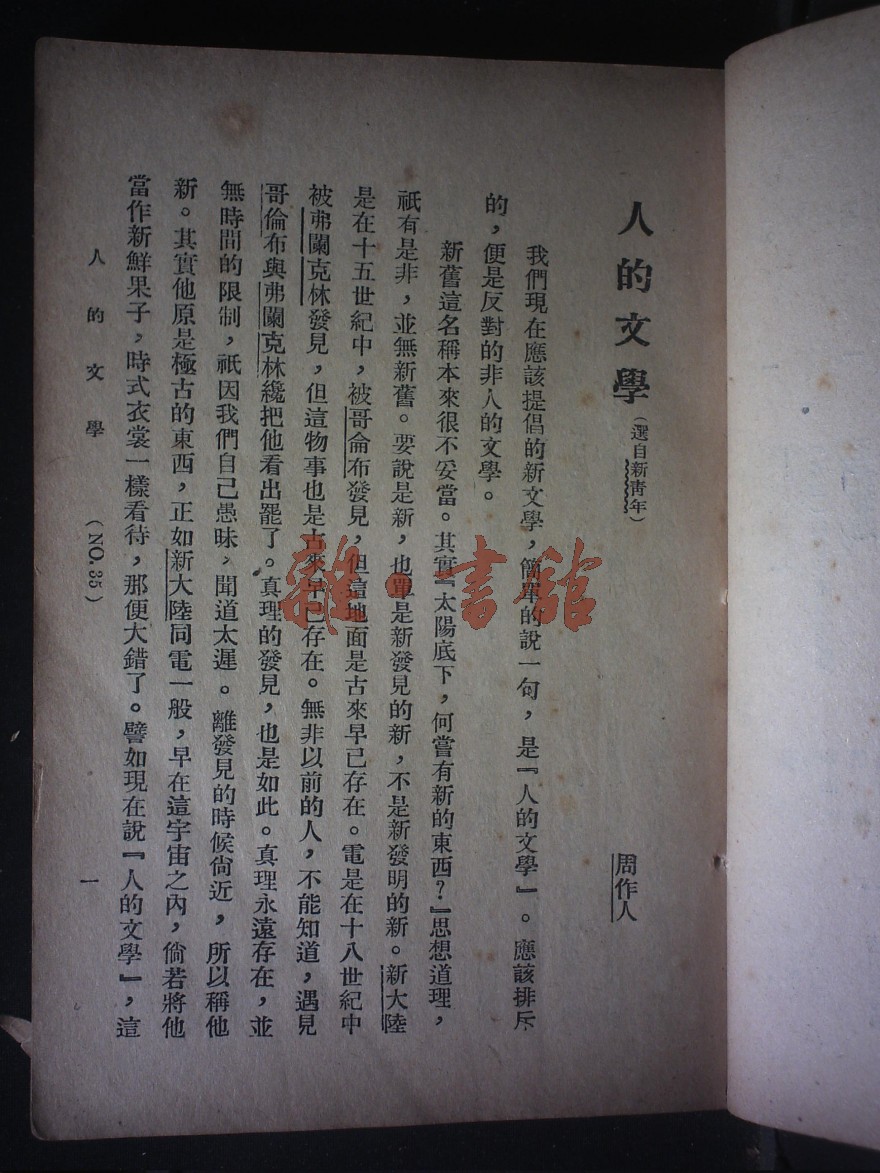 人的文學(選自新青年)
周作人
我們現在應該提倡的新文學，簡單的說一句，是『人的文學』。應該排斥
的，便是反對的非人的文學。
新舊這名稱本來很不妥當。其實『太陽底下，何嘗有新的東西？』思想道理，
祇有是非，並無新舊。要說是新，也單是新發見的新，不是新發明的新。新大陸
是在十五世紀中，被哥侖布發見，但這地面是古來早已存在。電是在十八世紀中
被弗闌克林發見，但這物事也是古來早已存在。無非以前的人，不能知道，遇見
哥倫布與弗闌克林纔把他看出罷了。真理的發見，也是如此。真理永遠存在，並
無時間的限制，祇因我們自己愚昧，聞道太遲。離發見的時候尙近，所以稱他
新。其實他原是極古的東西，正如新大陸同電一般，早在這宇宙之內，倘若將他
當作新鮮果子，時式衣裳一樣看待，那便大錯了。譬如現在說『人的文學』，這
人的文學 (NO.35) 一
雜·書館